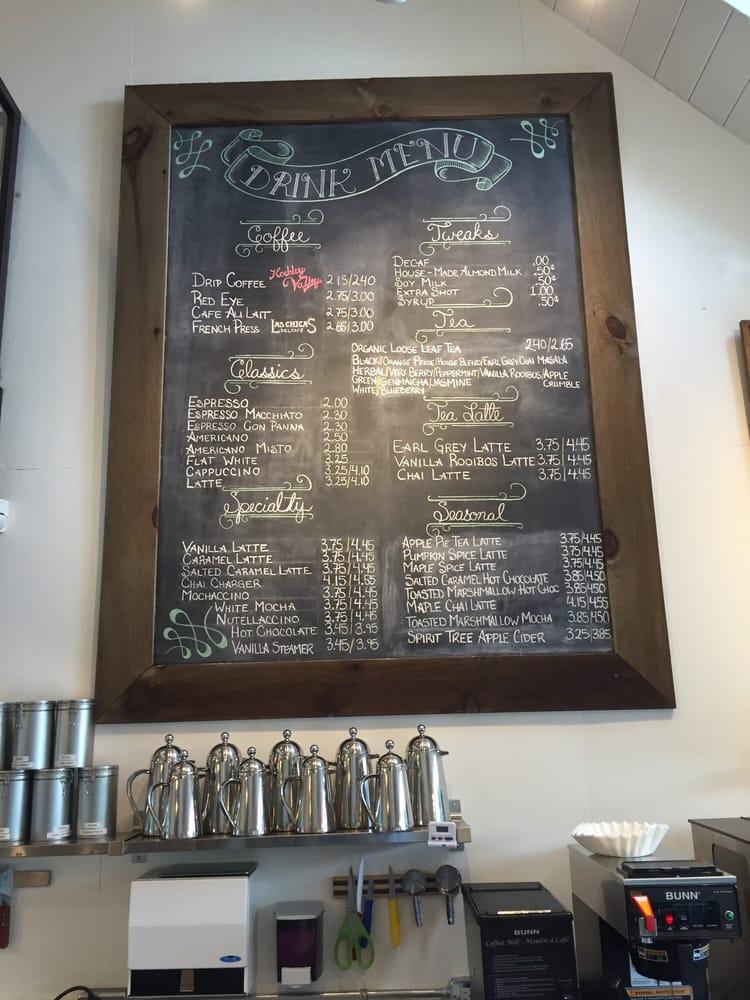 DRINK MENU
Coffee
DRIP COFFEE Hockley Valley 2.15/2.40
RED EYE 2.75/3.00
CAFE AU LAIT 2.75/3.00
FRENCH PRESS LAS CHICAS DEL CAFE 2.85/3.00
Classics
ESPRESSO 2.00
ESPRESSO MACCHIATO 2.30
ESPRESSO CON PANNA 2.30
AMERICANO 2.50
AMERICANO MISTO 2.80
FLAT WHITE 3.25
CAPPUCCINO 3.25/4.10
LATTE 3.25/4.10
Speciality
VANILLA LATTE 3.75/4.45
CARAMEL LATTE 3.75/4.45
SALTED CARAMEL LATTE 3.75/4.45
CHAI CHARGER 4.15/4.55
MOCHACCINO 3.75/4.45
WHITE MOCHA 3.75/4.45
NUTELLACCINO 3.75/4.45
HOT CHOCOLATE 3.45/3.95
VANILLA STEAMER 3.45/3.95
Tweaks
DECAF .00
HOUSE-MADE ALMOND MILK .50¢
SOY MILK .50¢
EXTRA SHOT 1.00
SYRUP .50¢
Tea
ORGANIC LOOSE LEAF TEA 2.40/2.65
BLACK/ORANGE PEKOE/HOUSE BLEND/EARL GREY/CHAI MASALA
HERBAL/VERY BERRY/PEPPERMINT/VANILLA ROOIBOS/APPLE CRUMBLE
GREEN/GENMAICHA/JASMINE
WHITE/BLUEBERRY
Tea Latte
EARL GREY LATTE 3.75/4.45
VANILLA ROOIBOS LATTE 3.75/4.45
CHAI LATTE 3.75/4.45
Seasonal
APPLE PIE TEA LATTE 3.75/4.45
PUMPKIN SPICE LATTE 3.75/4.45
MAPLE SPICE LATTE 3.75/4.45
SALTED CARAMEL HOT CHOCOLATE 3.85/4.50
TOASTED MARSHMALLOW HOT CHOC 3.85/4.50
MAPLE CHAI LATTE 4.15/4.55
TOASTED MARSHMALLOW MOCHA 3.85/4.50
SPIRIT TREE APPLE CIDER 3.25/3.85
BUNN
Coffee Mill - Moulin à Café
BUNN